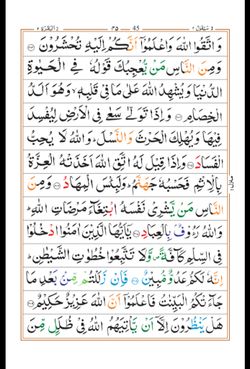 وَاتَّقُوا اللّٰهَ وَاعْلَمُوْٓا اَنَّكُمْ اِلَيْهِ تُحْشَرُوْنَ
وَمِنَ النَّاسِ مَنْ يُّعْجِبُكَ قَوْلُهٗ فِى الْحَيٰوةِ
الدُّنْيَا وَيُشْهِدُ اللّٰهَ عَلٰى مَا فِىْ قَلْبِهٖ ۙ وَهُوَ اَلَدُّ
الْخِصَامِ وَاِذَا تَوَلّٰى سَعٰى فِى الْاَرْضِ لِيُفْسِدَ
فِيْهَا وَيُهْلِكَ الْحَرْثَ وَالنَّسْلَ ؕ وَاللّٰهُ لَا يُحِبُّ
الْفَسَادَ وَاِذَا قِيْلَ لَهُ اتَّقِ اللّٰهَ اَخَذَتْهُ الْعِزَّةُ
بِالْاِثْمِ فَحَسْبُهٗ جَهَنَّمُ ؕ وَلَبِئْسَ الْمِهَادُ وَمِنَ
النَّاسِ مَنْ يَّشْرِىْ نَفْسَهُ ابْتِغَآءَ مَرْضَاتِ اللّٰهِ ؕ
وَاللّٰهُ رَءُوْفٌۢ بِالْعِبَادِ يٰٓاَيُّهَا الَّذِيْنَ اٰمَنُوا ادْخُلُوْا
فِى السِّلْمِ كَآفَّةً ۪ وَّلَا تَتَّبِعُوْا خُطُوٰتِ الشَّيْطٰنِ ؕ
اِنَّهٗ لَكُمْ عَدُوٌّ مُّبِيْنٌ فَاِنْ زَلَلْتُمْ مِّنْۢ بَعْدِ مَا
جَآءَتْكُمُ الْبَيِّنٰتُ فَاعْلَمُوْٓا اَنَّ اللّٰهَ عَزِيْزٌ حَكِيْمٌ
هَلْ يَنْظُرُوْنَ اِلَّآ اَنْ يَّاْتِيَهُمُ اللّٰهُ فِىْ ظُلَلٍ مِّنَ